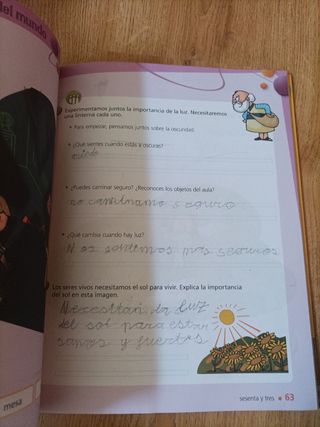 del mundo
Experimentamos juntos la importancia de la luz. Necesitaremos
una linterna cada uno.
• Para empezar, pensamos juntos sobre la oscuridad.
• ¿Qué sientes cuando estás a oscuras?
miedo
• ¿Puedes caminar seguro? ¿Reconoces los objetos del aula?
no caminamo seguro
• ¿Qué cambia cuando hay luz?
Nos sentimos mas seguros
Los seres vivos necesitamos el sol para vivir. Explica la importancia
del sol en esta imagen.
Necesitan la luz
del sol para estar
sanos y fuertes
mesa
sesenta y tres • 63